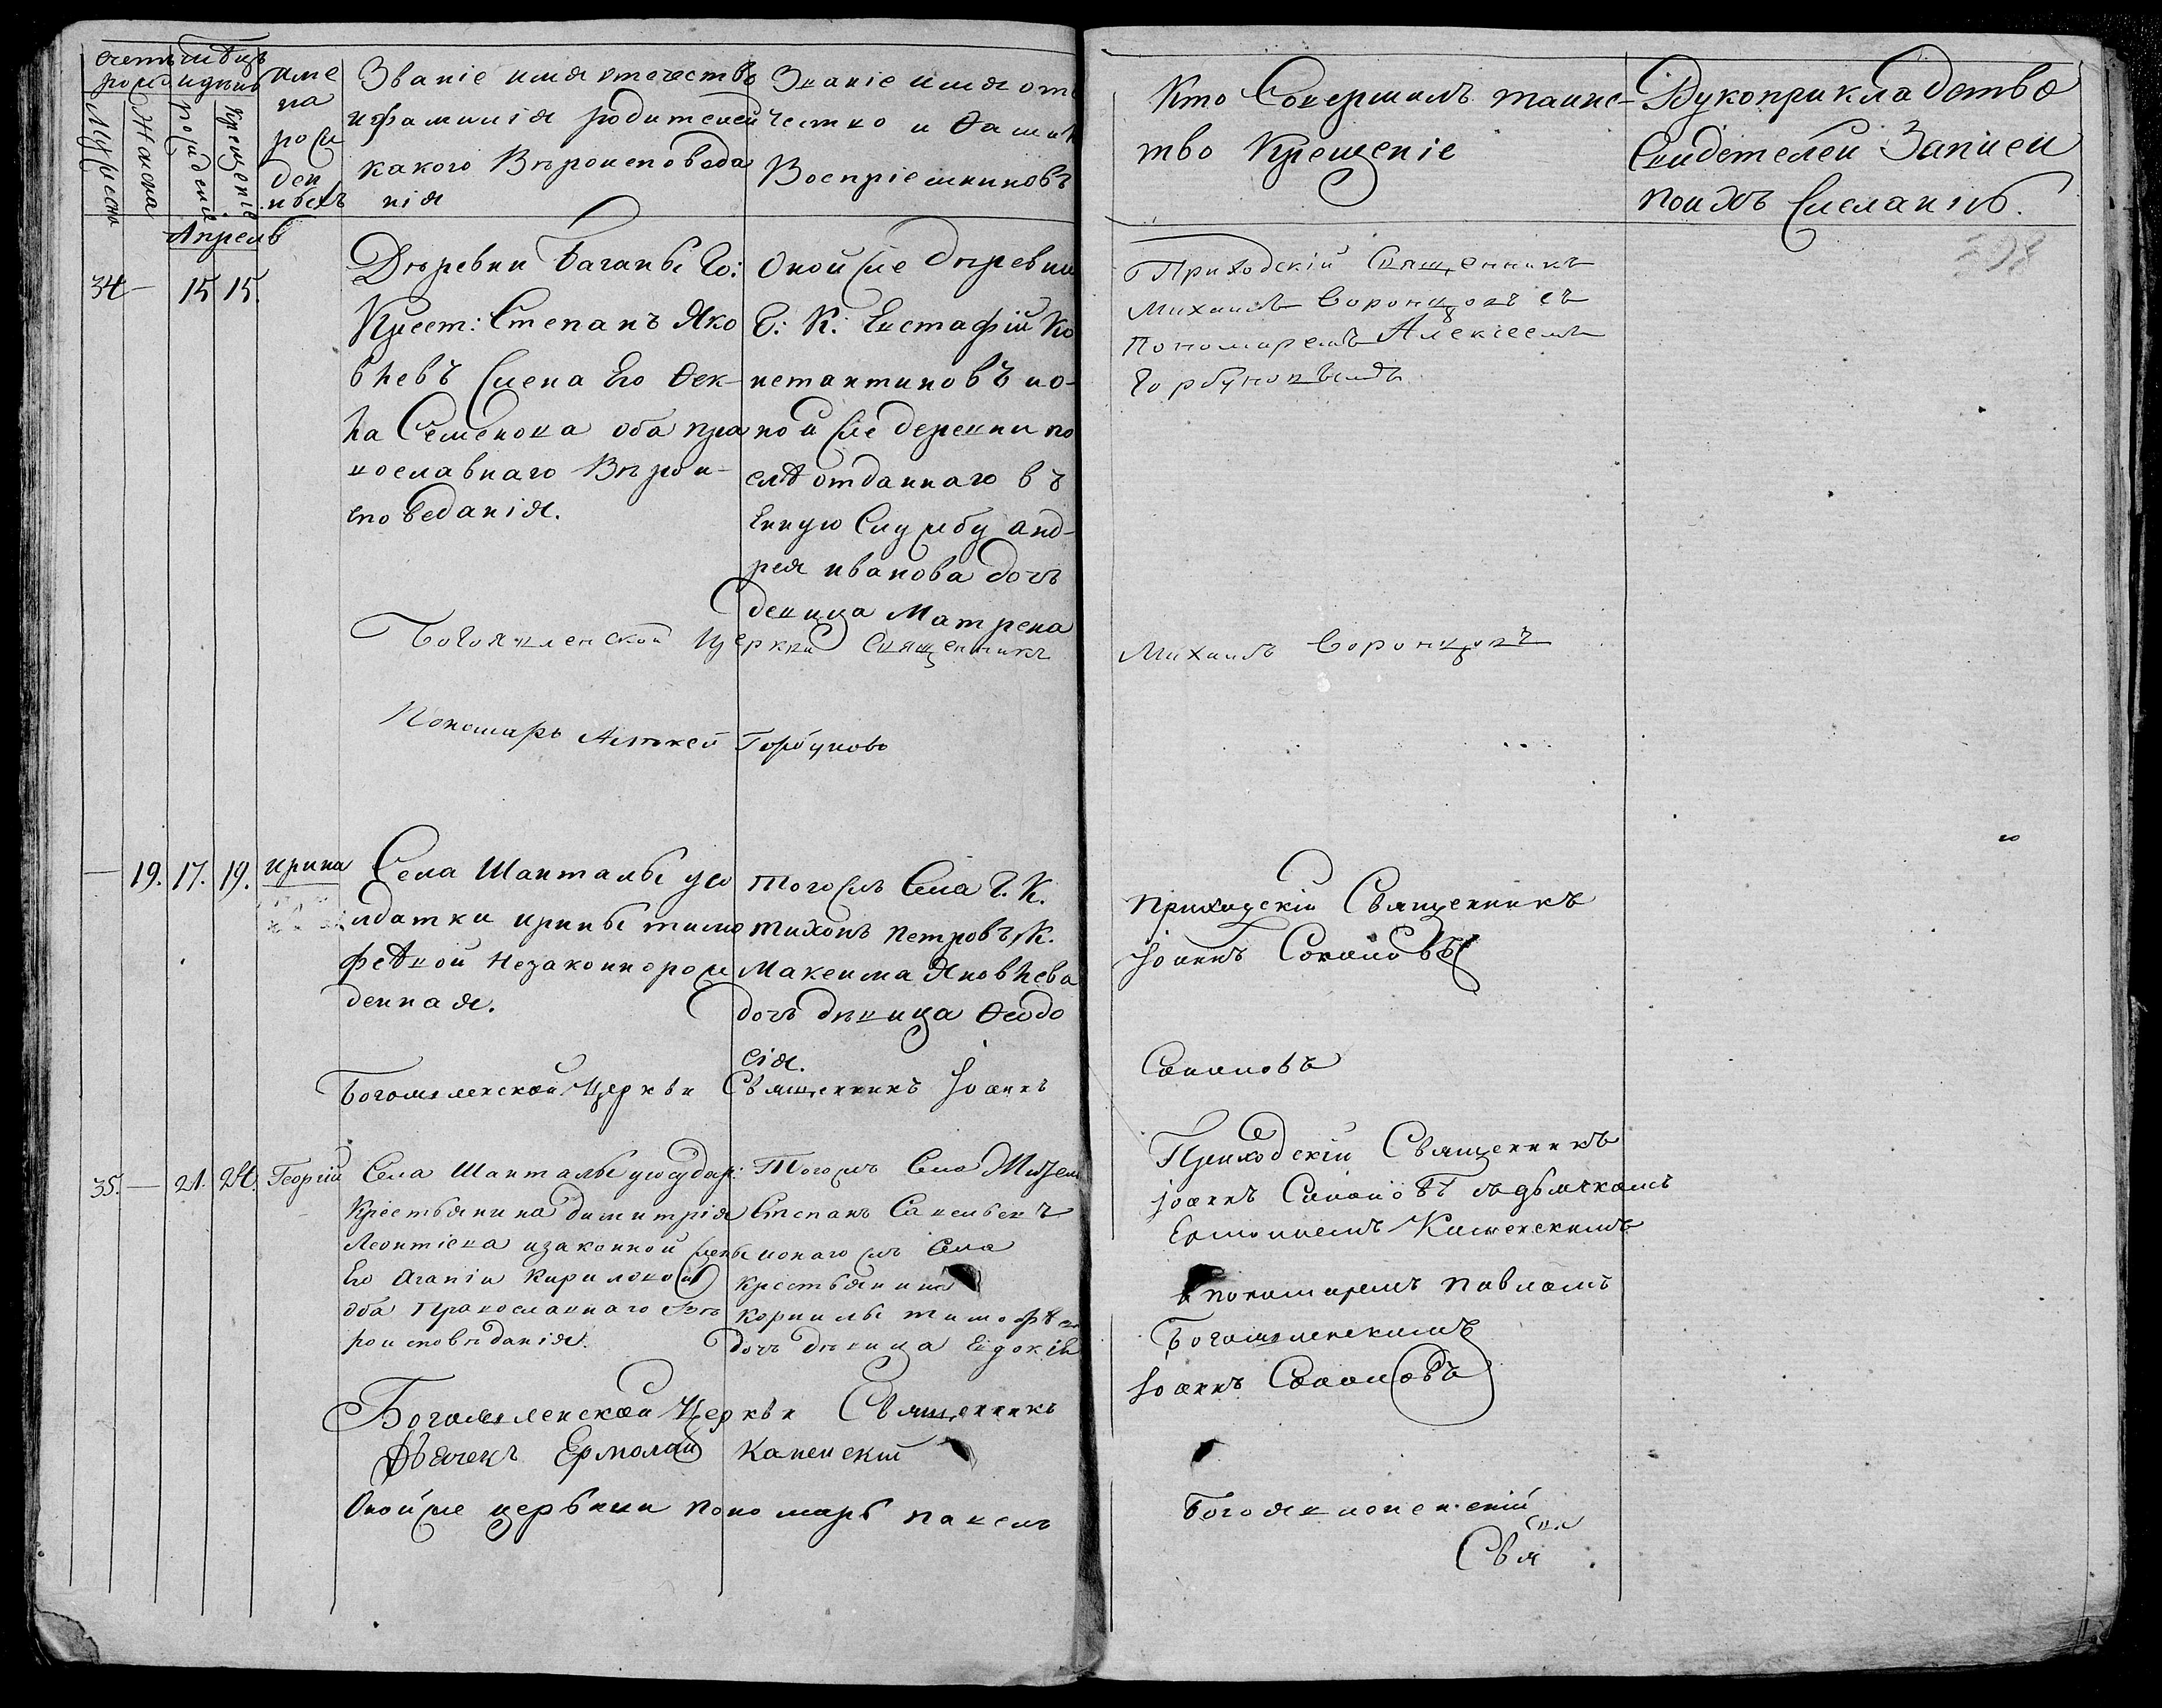 Счетъ мѣсяцъ
рожд. и день
Мужеска
Женска
рожденіе
крещеніе
име
на
рож
ден
ныхъ
Званіе имя отечество
и фамилія родителей
какого Вѣроисповеда
нія
Званіе имя оте
чество и Фамил
Воспріемниковъ
Апрель
34 — 15 15.
Деревни Баганы Го:
Крест: Степанъ Яко
влевъ Жена Его Фек
ла Семенова оба пра
вославнаго Вѣрои-
споведанія.
Оной же деревни
Г: К: Евстафій Ко
нстантиновъ и о-
ной же деревни по
слѣ отданнаго въ
Енную Службу анд-
рея иванова дочь
девица Матрена
Богоявленской Церкви Священникъ
Пономарь Алексей Горбуновъ
— 19. 17. 19. ирина
Села Шанталы у со
лдатки ирины тимо
фѣевой Незаконнорож
денная.
Того жъ Села Г. К.
тихонъ Петровъ, К.
Максима Яковлева
дочь девица Феодо
сія.
Богоявленской Церкви Священникъ Іоаннъ
35. — 21. 24. Георгій
Села Шанталы у государ:
Крестьянина димитрія
Леонтіева и законной жены
Его Агапіи Кириловой
оба Православнаго Вѣ
роисповѣданія.
Того жъ Села
Степанъ Савельевъ
и онаго жъ Села
крестьянина
Корнилы тимофѣева
дочь девица Евдокія
Богоявленской Церкви Священникъ
Дьячекъ Ермолай Каменскій
Оной же церьвии пономарь павелъ
Кто Совершилъ таинс-
тво Крещеніе
Рукоприкладство
Свидетелей Записи
по ихъ Желанію.
398
Приходскій Священникъ
Михаилъ Воронцовъ съ
Пономаремъ Алексеемъ
Горбуновымъ
Михаилъ Воронцовъ
приходскій Священникъ
Іоаннъ Соколовъ
Соколовъ
Приходскій Священникъ
іоаннъ Соколовъ съ дьячкомъ
Ермолаемъ Каменскимъ
и пономаремъ Павломъ
Богоявленскимъ
Іоаннъ Соколовъ
Богоявленскій
Свя